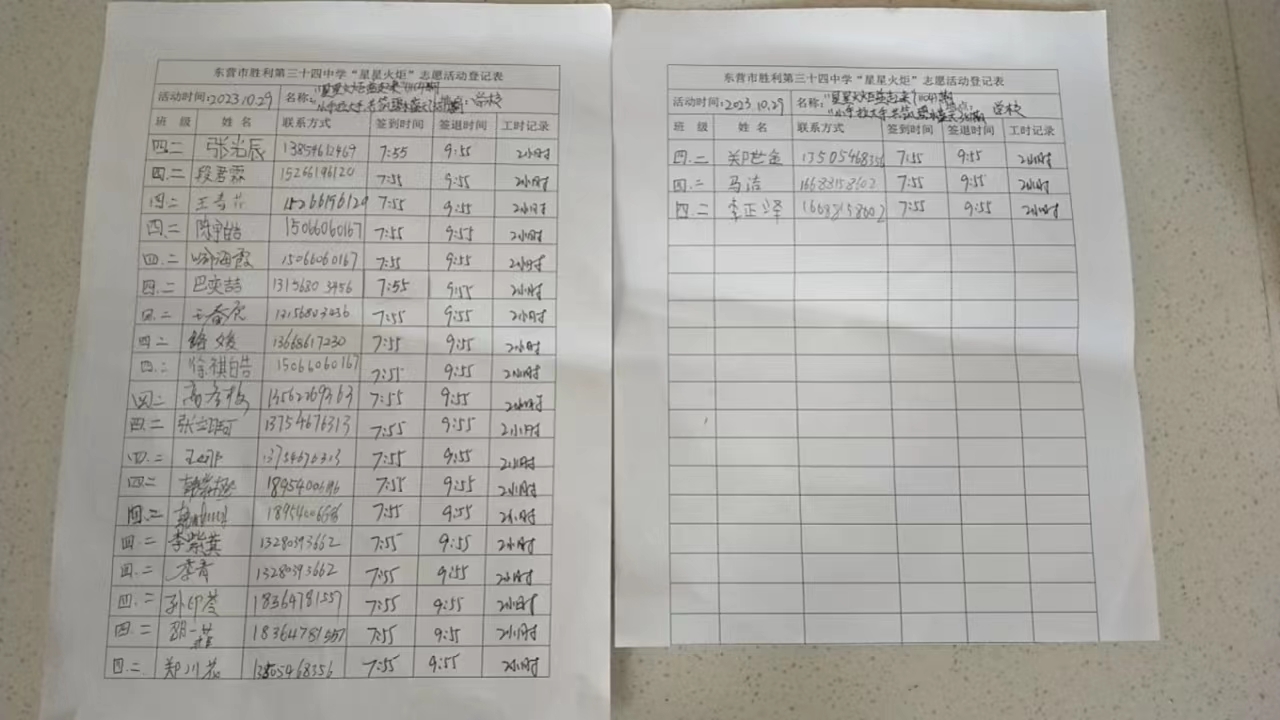 东营市胜利第三十四中学“星星火炬”志愿活动登记表
活动时间:2023.10.29 名称: 地点:学校
班 级 姓 名 联系方式 签到时间 签退时间 工时记录
四二 张光辰 13854612469 7:55 9:55 2小时
四.二 段君霖 15266196120 7:55 9:55 2小时
四二 王 15266196120 7:55 9:55 2小时
四.二 陈宇皓 15066060167 7:55 9:55 2小时
四.二 海霞 15066060167 7:55 9:55 2小时
四.二 巴奕喆 13156803456 7:55 9:55 2小时
四.二 7:55 9:55 2小时
四二 13668617230 7:55 9:55 2小时
四.二 徐祺皓 15066060167 7:55 9:55 2小时
四二 高 13562269363 7:55 9:55 2小时
四.二 张立珂 13754676313 7:55 9:55 2小时
四.二 王 13754676313 7:55 9:55 2小时
四二 7:55 9:55 2小时
四.二 7:55 9:55 2小时
四.二 李紫萁 13280393662 7:55 9:55 2小时
四.二 李青 13280393662 7:55 9:55 2小时
四.二 孙印莹 18364781557 7:55 9:55 2小时
四.二 18364781557 7:55 9:55 2小时
四.二 郑川花 13505468356 7:55 9:55 2小时
东营市胜利第三十四中学“星星火炬”志愿活动登记表
活动时间:2023.10.29 名称: 地点:学校
班 级 姓 名 联系方式 签到时间 签退时间 工时记录
四.二 郑世金 13505468356 7:55 9:55 2小时
四.二 马洁 16683158602 7:55 9:55 2小时
四.二 李正泽 16683158602 7:55 9:55 2小时